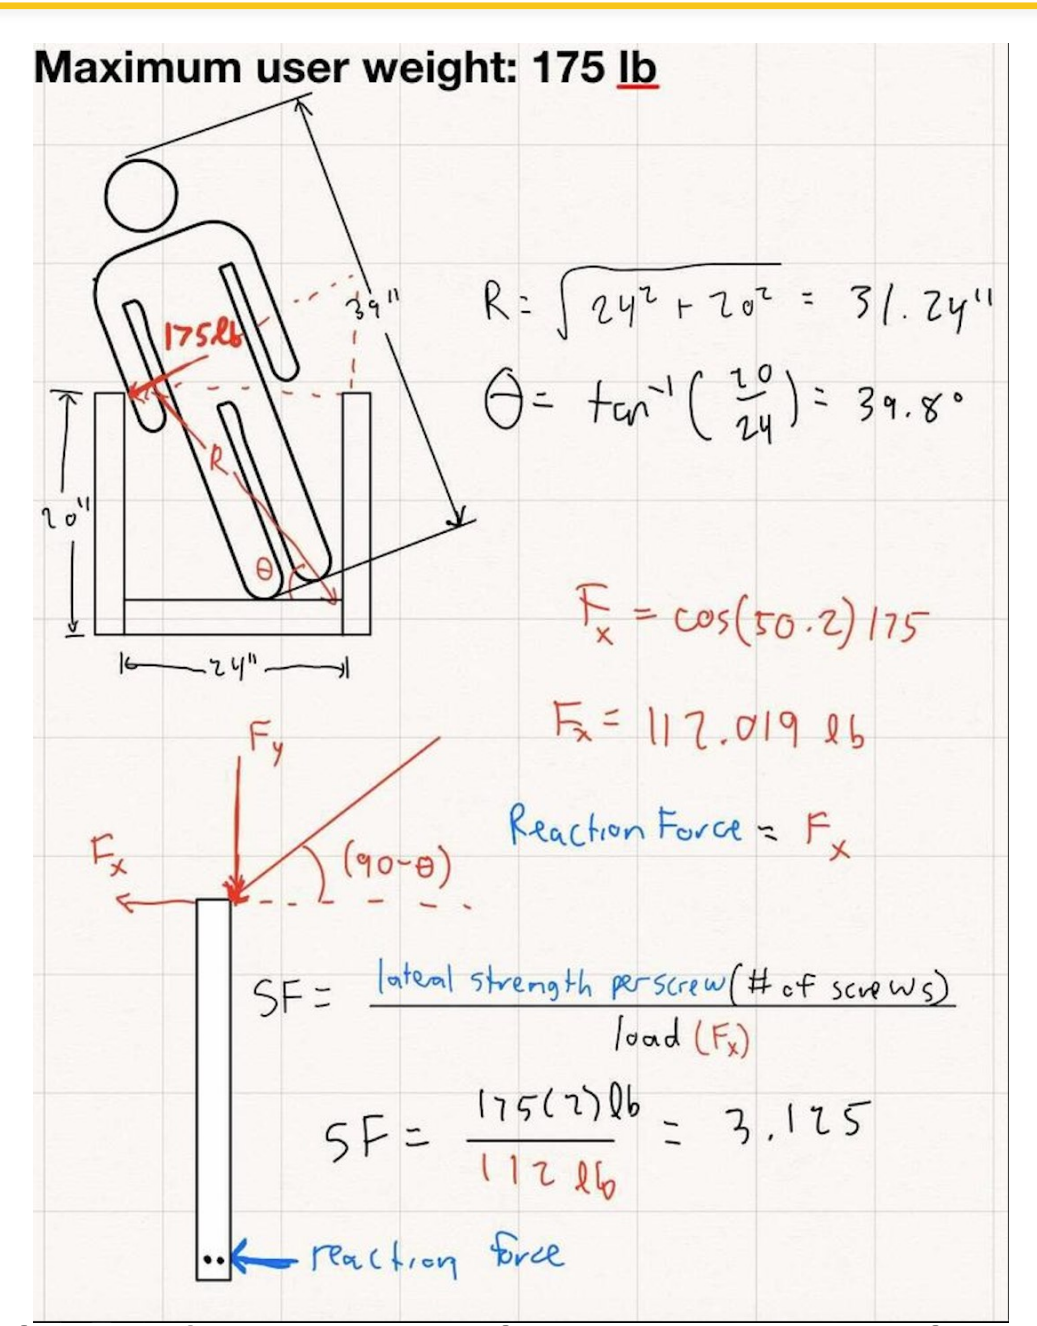 Maximum user weight: 175 lb
39"
175lb
R = √24² + 20² = 31.24"
θ = tan⁻¹(20/24) = 39.8°
R
20"
θ
24"
Fx = cos(50.2)175
Fx = 112.019 lb
Fy
Reaction Force = Fx
Fx
(90-θ)
SF = lateral strength per screw (# of screws)
load (Fx)
SF = 175(2)lb = 3.125
112 lb
reaction force